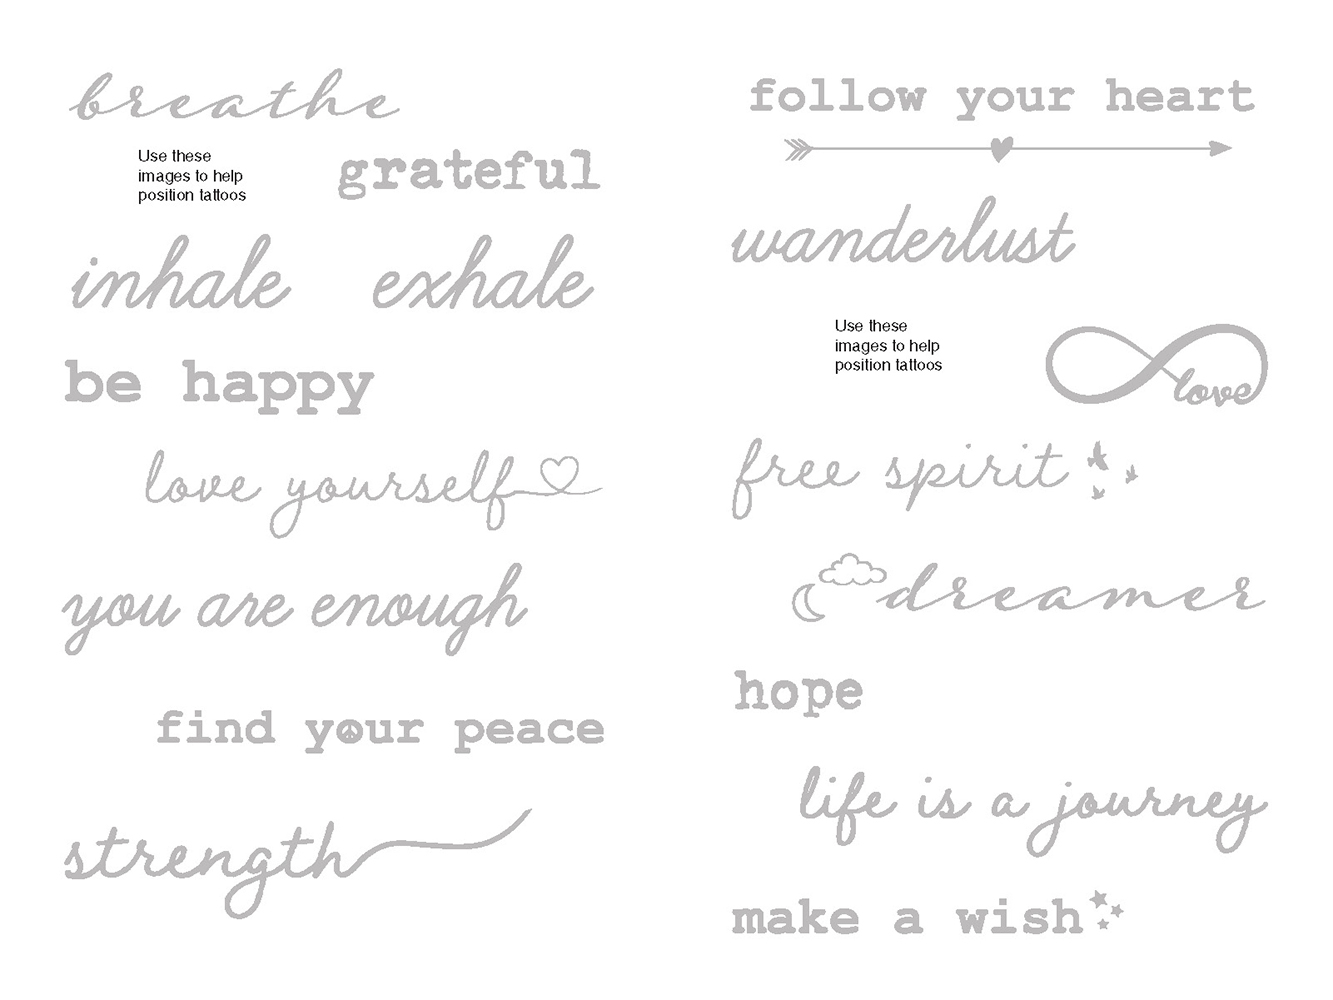 breathe
Use these
images to help
position tattoos
grateful
inhale exhale
be happy
love yourself
you are enough
find your peace
strength
follow your heart
wanderlust
Use these
images to help
position tattoos
love
free spirit
dreamer
hope
life is a journey
make a wish